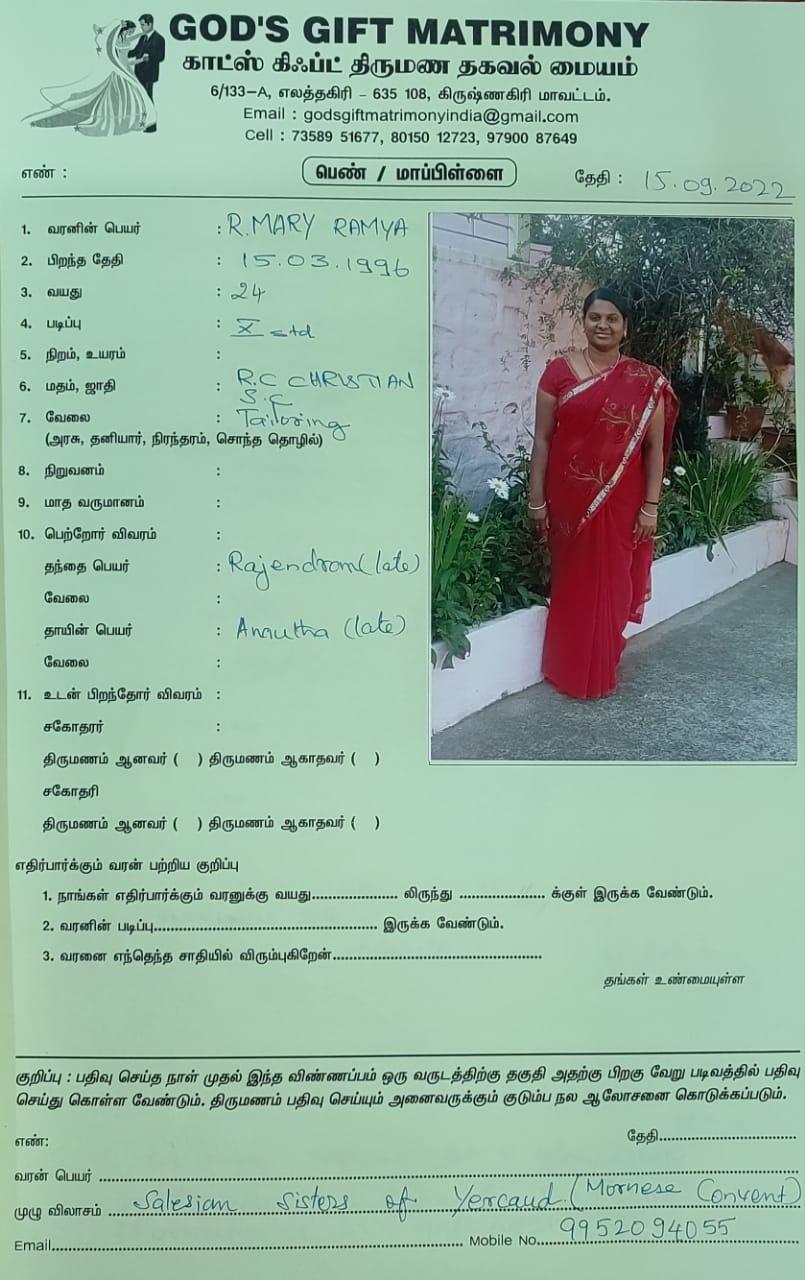 GOD'S GIFT MATRIMONY
காட்ஸ் கிஃப்ட் திருமண தகவல் மையம்
6/133-A, எலத்தகிரி - 635 108, கிருஷ்ணகிரி மாவட்டம்.
Email : godsgiftmatrimonyindia@gmail.com
Cell : 73589 51677, 80150 12723, 97900 87649
எண் : பெண் / மாப்பிள்ளை தேதி : 15.09.2022
1. வரனின் பெயர் : R.MARY RAMYA
2. பிறந்த தேதி : 15.03.1996
3. வயது : 24
4. படிப்பு : X std
5. நிறம், உயரம் :
6. மதம், ஜாதி : R.C CHRISTIAN
S.C
7. வேலை : Tailoring
(அரசு, தனியார், நிரந்தரம், சொந்த தொழில்)
8. நிறுவனம் :
9. மாத வருமானம் :
10. பெற்றோர் விவரம் :
தந்தை பெயர் : Rajendran (late)
வேலை :
தாயின் பெயர் : (late)
வேலை :
11. உடன் பிறந்தோர் விவரம் :
சகோதரர் :
திருமணம் ஆனவர் ( ) திருமணம் ஆகாதவர் ( )
சகோதரி
திருமணம் ஆனவர் ( ) திருமணம் ஆகாதவர் ( )
எதிர்பார்க்கும் வரன் பற்றிய குறிப்பு
1. நாங்கள் எதிர்பார்க்கும் வரனுக்கு வயது.................... லிருந்து .................... க்குள் இருக்க வேண்டும்.
2. வரனின் படிப்பு.................................................... இருக்க வேண்டும்.
3. வரனை எந்தெந்த சாதியில் விரும்புகிறேன்..................................................
தங்கள் உண்மையுள்ள
குறிப்பு : பதிவு செய்த நாள் முதல் இந்த விண்ணப்பம் ஒரு வருடத்திற்கு தகுதி அதற்கு பிறகு வேறு படிவத்தில் பதிவு
செய்து கொள்ள வேண்டும். திருமணம் பதிவு செய்யும் அனைவருக்கும் குடும்ப நல ஆலோசனை கொடுக்கப்படும்.
எண்: தேதி................................
வரன் பெயர் ................................................................................
முழு விலாசம் Salesian Sisters of Yercaud. (Mornese Convent)
Email.................................................. Mobile No. 9952094055